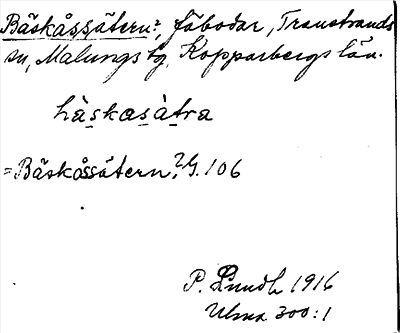 Bäskåssätern², fäbodar, Transtrands
sn, Malungs tg, Kopparbergs län.
bàskasàtra
=Bäskåssätern,² G. 106
P. Lundh 1916
Ulma 300:1